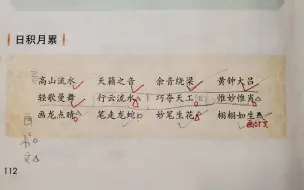 日积月累
高山流水 天籁之音 余音绕梁 黄钟大吕
轻歌曼舞 行云流水 巧夺天工 惟妙惟肖
画龙点睛 笔走龙蛇 妙笔生花 栩栩如生
画
文
112